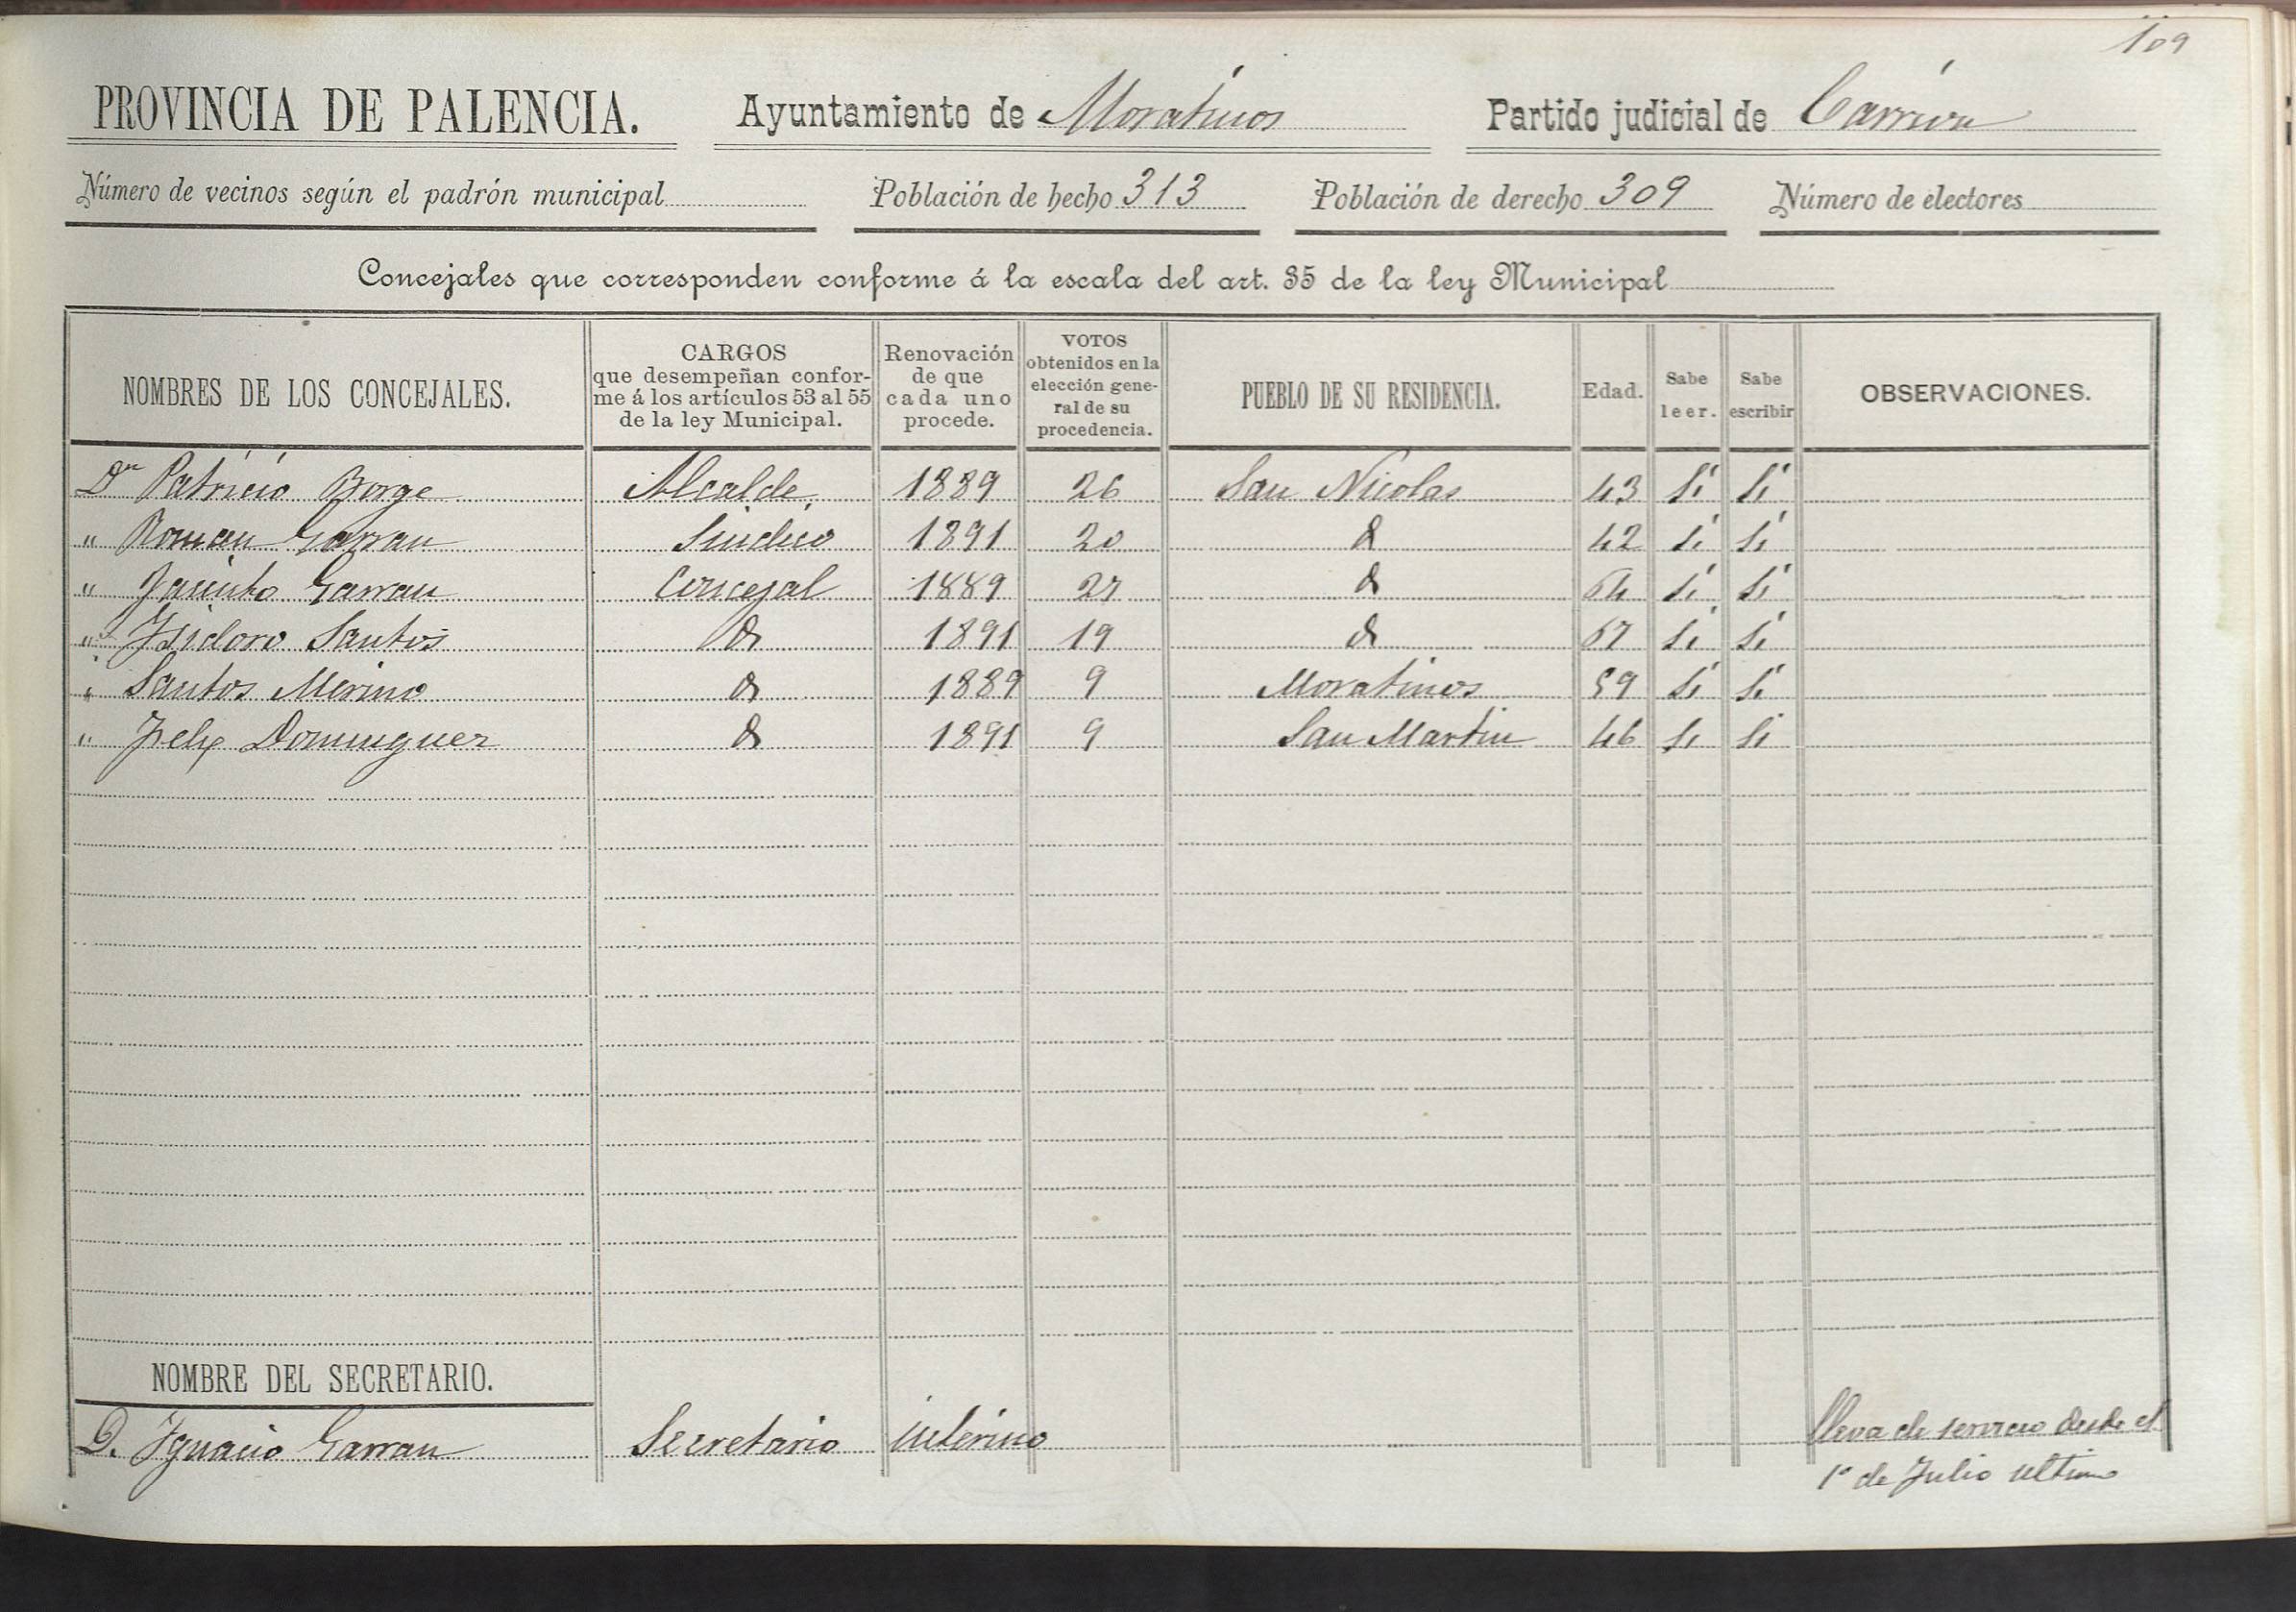 109
PROVINCIA DE PALENCIA. Ayuntamiento de Moratinos Partido judicial de Carrion
Número de vecinos según el padrón municipal Población de hecho 313 Población de derecho 309 Número de electores
Concejales que corresponden conforme á la escala del art. 35 de la ley Municipal
NOMBRES DE LOS CONCEJALES. CARGOS que desempeñan confor-me á los artículos 53 al 55 de la ley Municipal. Renovación de que cada uno procede. VOTOS obtenidos en la elección gene-ral de su procedencia. PUEBLO DE SU RESIDENCIA. Edad. Sabe leer. Sabe escribir OBSERVACIONES.
Dn Patricio Borge Alcalde 1889 26 San Nicolas 43 Si Si
" Roman Garran Sindico 1891 20 d 42 Si Si
" Jacinto Garran Concejal 1889 27 d 64 Si Si
" Isidoro Santos d 1891 19 d 67 Si Si
" Santos Merino d 1889 9 Moratinos 59 Si Si
" Felix Dominguez d 1891 9 San Martin 46 Si Si
NOMBRE DEL SECRETARIO.
D. Ignacio Garran Secretario interino lleva de servicio desde el
1º de Julio ultimo